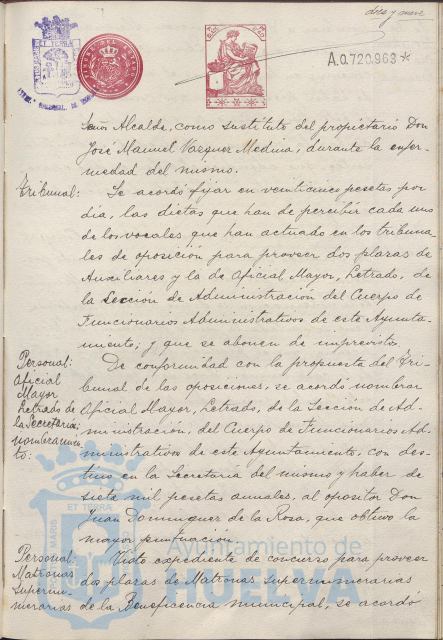 doce y nueve
A.0.720.963 *
Señor Alcalde, como sustituto del propietario Don
José Manuel Vazquez Medina, durante la enfer-
medad del mismo.
Tribunal:
Se acordó fijar en veinticinco pesetas por
día, las dietas que han de percibir cada uno
de los vocales que han actuado en los tribuna-
les de oposición para proveer dos plazas de
Auxiliares y la de Oficial Mayor, Letrado, de
la Sección de Administración del Cuerpo de
Funcionarios Administrativos de este Ayunta-
miento; y que se abonen de imprevistos.
Personal:
Oficial
Mayor
Letrado de
la Secretaría:
nombramien-
to:
De conformidad con la propuesta del Tri-
bunal de las oposiciones, se acordó nombrar
Oficial Mayor, Letrado, de la Sección de Ad-
ministración, del Cuerpo de Funcionarios Ad-
ministrativos de este Ayuntamiento, con des-
tino en la Secretaría del mismo y haber de
siete mil pesetas anuales, al opositor Don
Juan Dominguez de la Rosa, que obtuvo la
mayor puntuación.
Personal:
Matronas
Supernu-
merarias
Visto expediente de concurso para proveer
dos plazas de Matronas Supernumerarias
de la Beneficencia municipal, se acordó
Ayuntamiento de
HUELVA